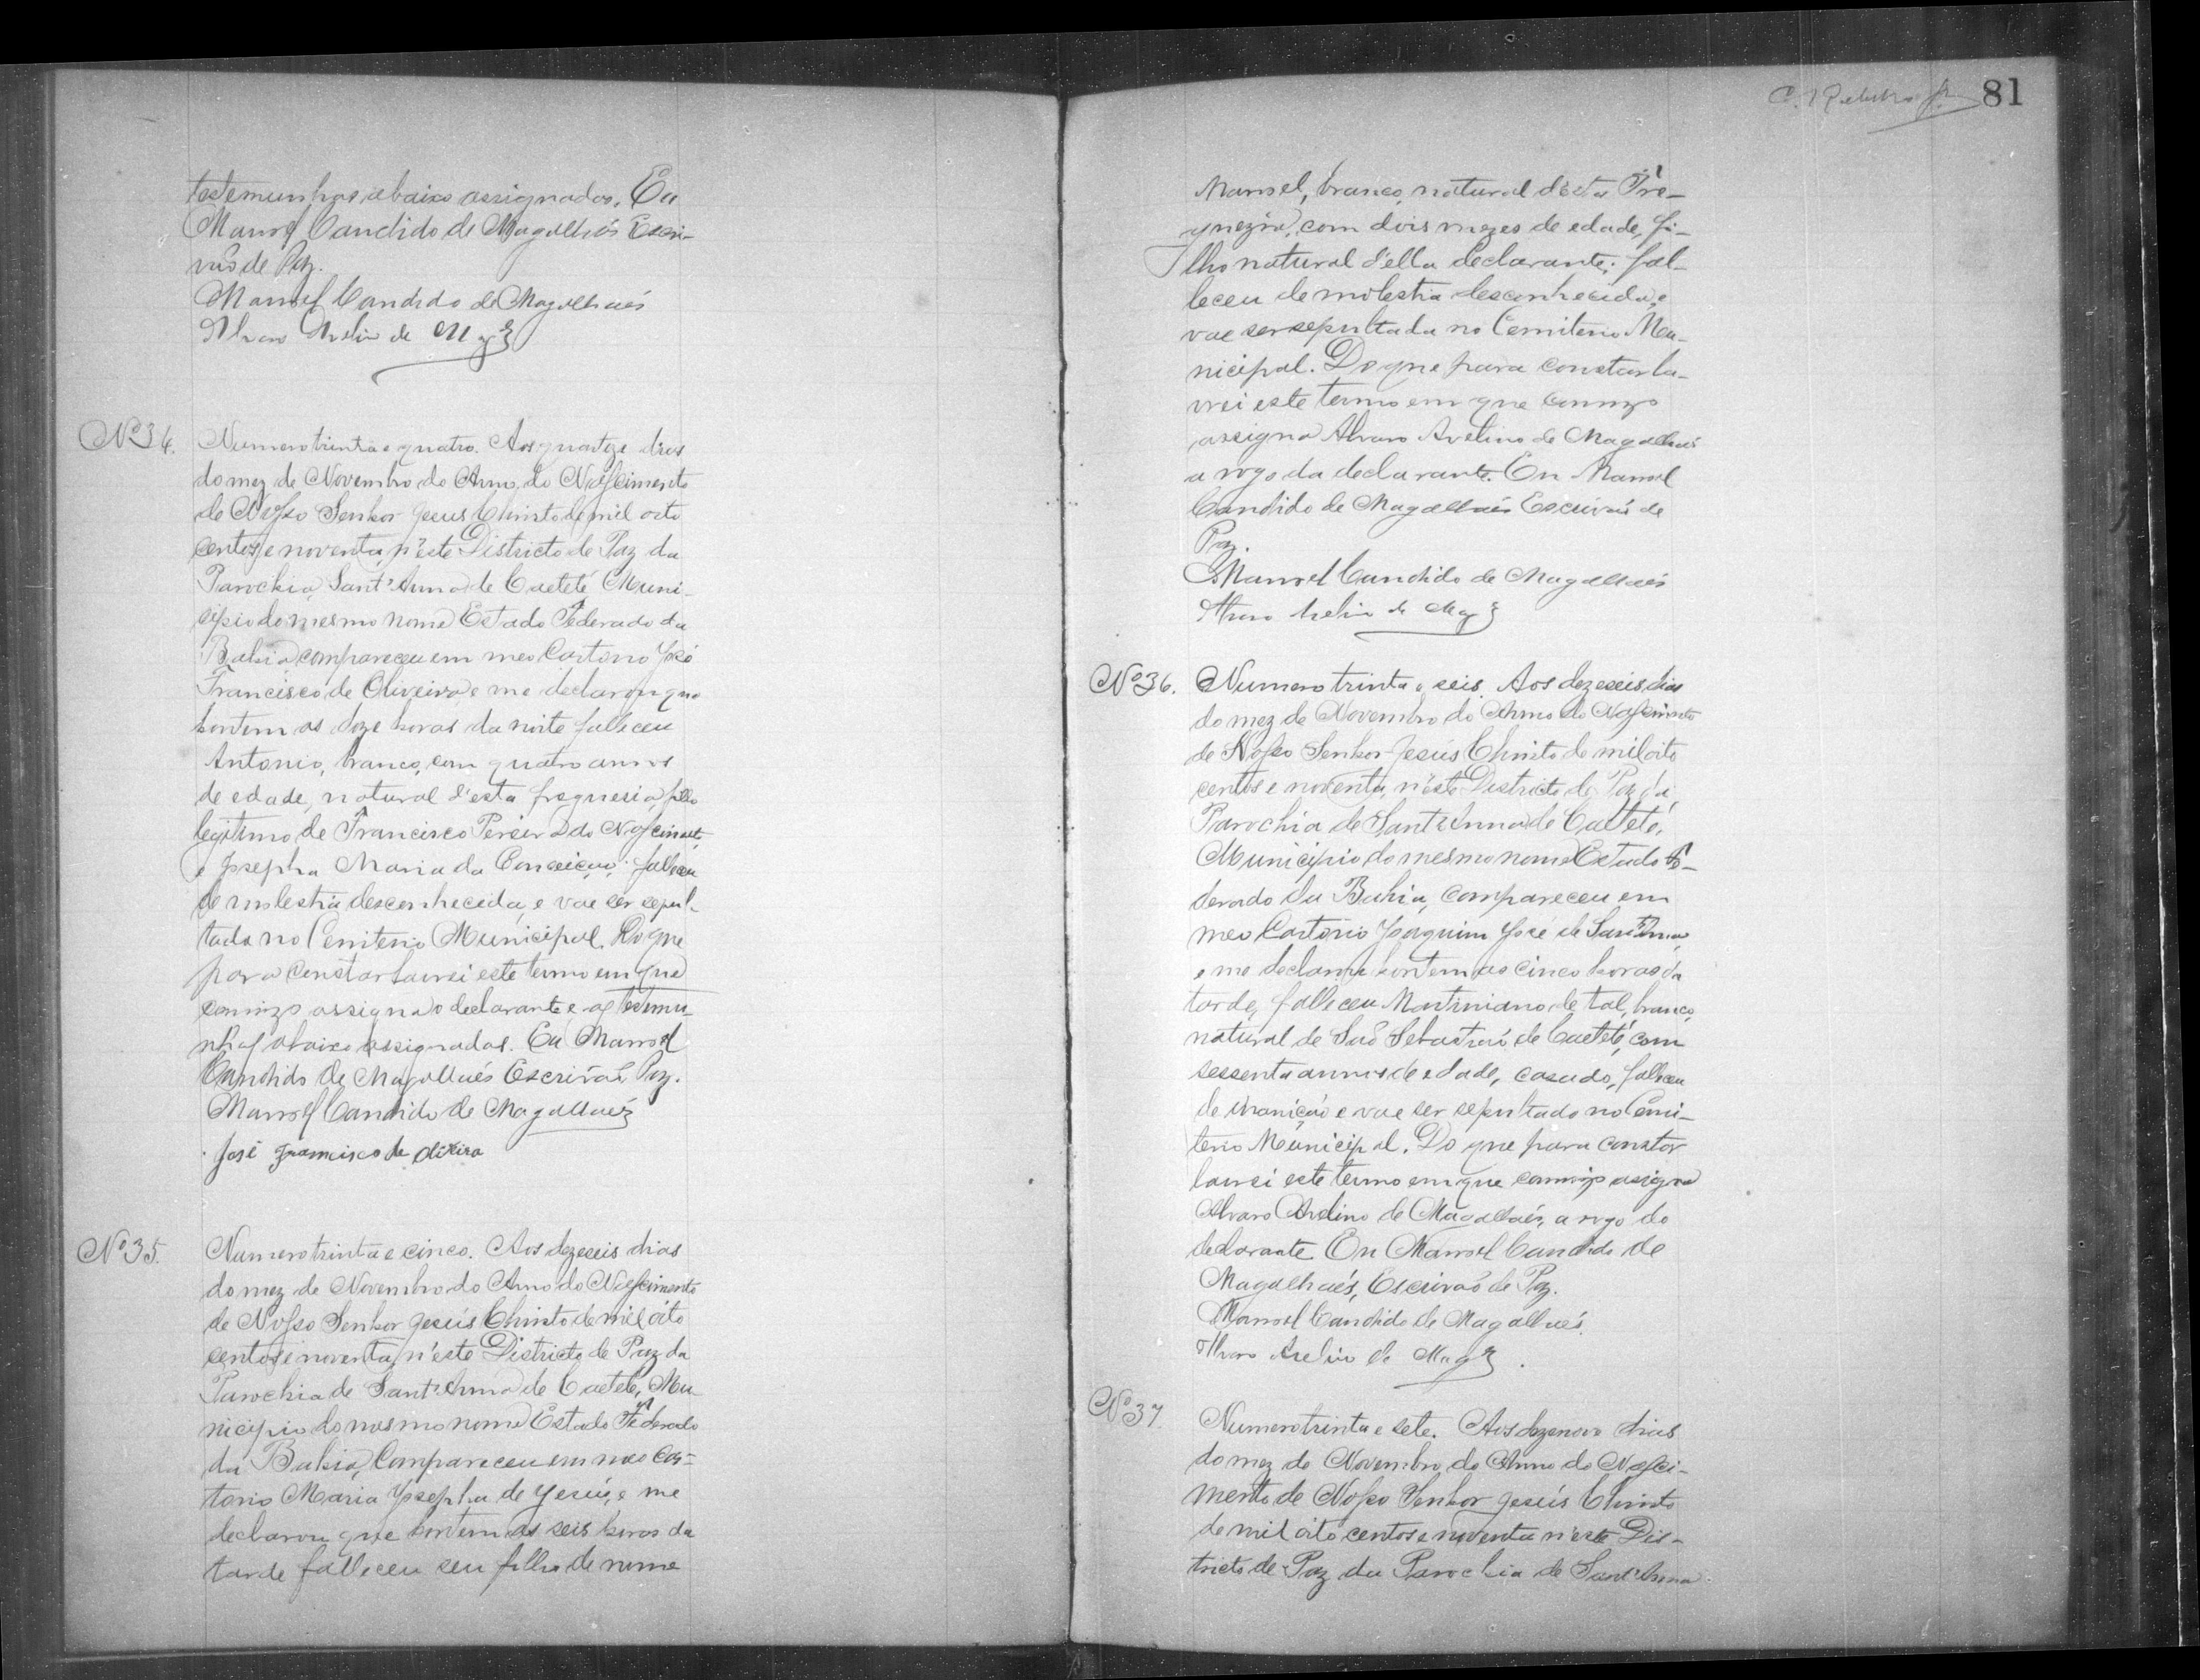 testemunhas abaixo assignados. Eu
Manoel Candido de Magalhães Escri-
vão de Paz.
Manoel Candido de Magalhães
Alvaro Avelino de Mag.es
Nº 34.
Numero trinta e quatro. Aos quatorze dias
do mez de Novembro do Anno do Nascimento
de Nosso Senhor Jesus Christo de mil oito
centos e noventa, n'este Districto de Paz da
Parochia Sant'Anna de Caeteté Muni-
cipio do mesmo nome Estado Federado da
Bahia compareceu em meo Cartorio José
Francisco de Oliveira, e me declarou que
hontem as doze horas da noite falleceu
Antonio, branco, com quatro annos
de edade, natural d'esta freguesia, filho
legitimo de Francisco Pereira do Nascimento,
e Josepha Maria da Conceição; falleceu
de molestia desconhecida, e vae ser sepul-
tado no Cemiterio Municipal. Do que
para constar lavrei este termo em que
comigo assigna o declarante e as testemu-
nhas abaixo assignadas. Eu Manoel
Candido de Magalhães Escrivão Paz.
Manoel Candido de Magalhães
José Francisco de Oliveira
Nº 35.
Numero trinta e cinco. Aos dezeseis dias
do mez de Novembro do Anno do Nascimento
de Nosso Senhor Jesús Christo de mil oito
centos e noventa, n'este Districto de Paz da
Parochia de Sant'Anna de Caeteté, Mu-
nicipio do mesmo nome Estado Federado
da Bahia, Compareceu em meo Car-
torio Maria Josepha de Jesús, e me
declarou que hontem as seis horas da
tarde falleceu seu filho de nome
81
Manoel, branco, natural d'esta Fre-
guezia, com dois mezes de edade, fi-
lho natural d'ella declarante; fal-
leceu de molestia desconhecida, e
vae ser sepultada no Cemiterio Mu-
nicipal. Do que para constar la-
vrei este termo em que comigo
assigna Alvaro Avelino de Magalhães
a rogo da declarante. Eu Manoel
Candido de Magalhães Escrivão de
Paz.
Manoel Candido de Magalhães
Alvaro Avelino de Mag.es
Nº 36.
Numero trinta e seis. Aos dezeseis dias
do mez de Novembro do Anno do Nascimento
de Nosso Senhor Jesús Christo de mil oito
centos e noventa, n'este Districto de Paz da
Parochia de Sant'Anna de Caeteté,
Municipio do mesmo nome Estado Fe-
derado da Bahia, compareceu em
meo Cartorio Joaquim José de Sant'Anna
e me declarou hontem as cinco horas da
tarde, falleceu Martiniano de tal, branco,
natural de São Sebastião de Caeteté, com
sessenta annos de edade, casado, falleceu
de e vae ser sepultado no Cemi-
terio Municipal. Do que para constar
lavrei este termo em que comigo assigna
Alvaro Avelino de Magalhães, a rogo do
declarante Eu Manoel Candido de
Magalhães, Escrivão de Paz.
Manoel Candido de Magalhães.
Alvaro Avelino de Mag.es
Nº 37
Numero trinta e sete. Aos dezenove dias
do mez de Novembro do Anno do Nasci-
mento de Nosso Senhor Jesús Christo
de mil oito centos e noventa n'este Dis-
tricto de Paz da Parochia de Sant'Anna